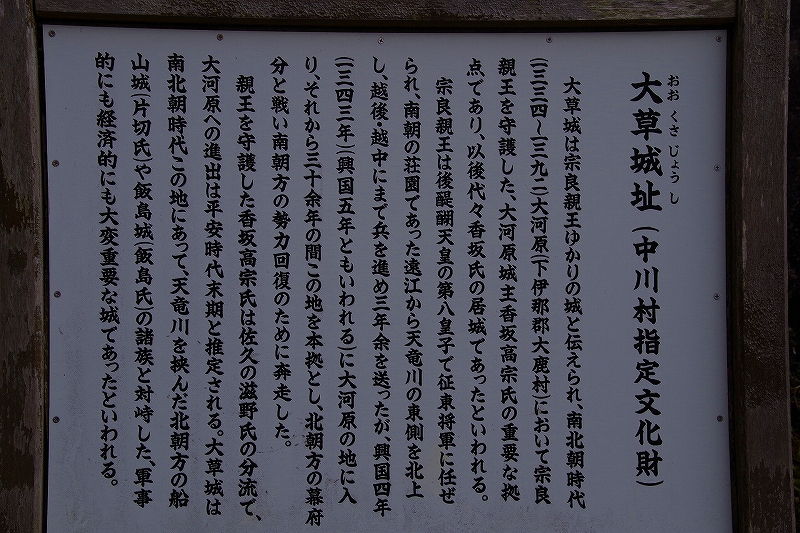 おおくさじょうし
大草城址(中川村指定文化財)
大草城は宗良親王ゆかりの城と伝えられ、南北朝時代
(一三三四〜一三九二)大河原(下伊那郡大鹿村)において宗良
親王を守護した、大河原城主香坂高宗氏の重要な拠
点であり、以後代々香坂氏の居城であったといわれる。
宗良親王は後醍醐天皇の第八皇子で征東将軍に任ぜ
られ、南朝の荘園であった遠江から天竜川の東側を北上
し、越後・越中にまで兵を進め三年余を送ったが、興国四年
(一三四三年)(興国五年ともいわれる)に大河原の地に入
り、それから三十余年の間この地を本拠とし、北朝方の幕府
分と戦い南朝方の勢力回復のために奔走した。
親王を守護した香坂高宗氏は佐久の滋野氏の分流で、
大河原への進出は平安時代末期と推定される。大草城は
南北朝時代この地にあって、天竜川を挟んだ北朝方の船
山城(片切氏)や飯島城(飯島氏)の諸族と対峙した、軍事
的にも経済的にも大変重要な城であったといわれる。